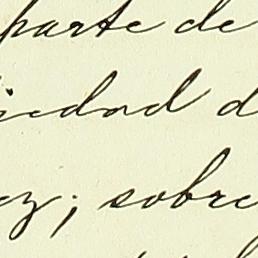 parte de
iedad d
ez; sobre